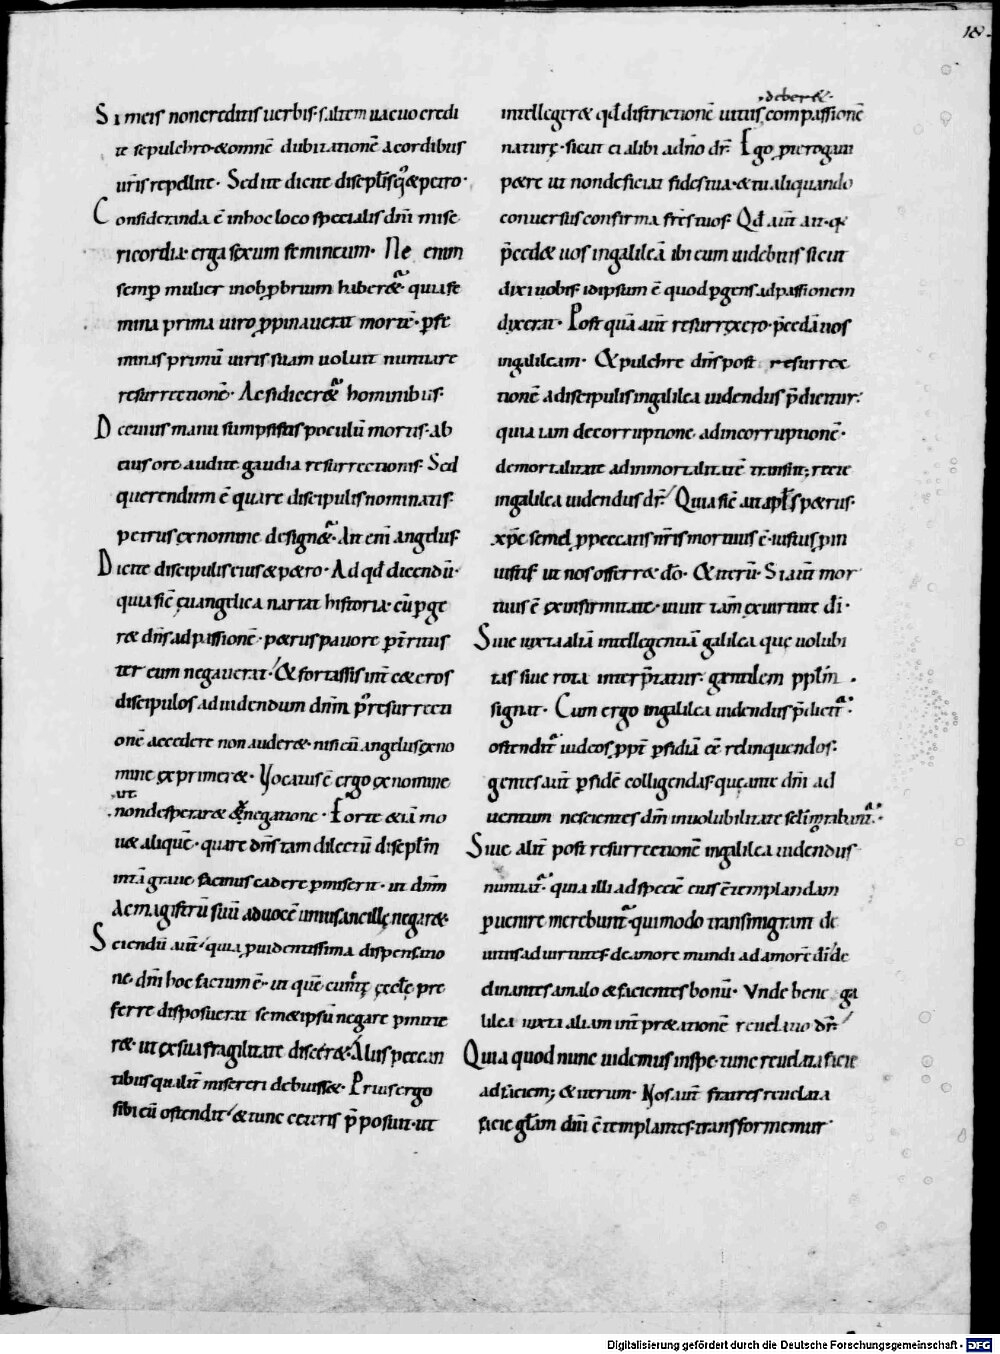 18.
Si meis non creditis uerbis· saltem uacuo credi
te sepulchro· & omnē dubitationē a cordibus
uris repellite· Sed ite dicite discipl̄is eiꝰ & petro·
Consideranda ē in hoc loco specialis dn̄i mise
ricordia· erga sexum femineum· Ne enim
semp mulier in obprobrium haber& quia fe
mina prima uiro ppinauerat mortē· p fe
minas primū uiris suam uoluit nuntiare
resurrectionē· Ac si dicer& hominibus·
De cuius manu sumpsistis poculū mortis· ab
eius ore audite gaudia resurrectionis· Sed
querendum ē quare discipulis nominatis·
petrus ex nomine design&· Ait eni angelus·
Dicite discipulis eius & p&ro· Ad qd dicendū·
quia sic̄ euangelica narrat historia· cū pge
r& dn̄s ad passionē· p&rus pauore pterritus
ter eum negauerat· & fortassis int c&eros
discipulos ad uidendum dn̄m p resurrecti
onē accedere non auder&· nisi eū angelus exno
mine exprimer&· Vocatus ē ergo ex nomine
ut
non desperar& ex negatione· Forte &iā mo
u& aliquē· quare dn̄s tam dilectū discipl̄m
intā graue facinus cadere pmiserit· ut dn̄m
ac magistrū suū ad uocē unius ancille negar&·
Sciendū aut· quia puidentissima dispensatio
ne· dn̄i hoc factum ē· ut quē cunctę ecclē pre
ferre disposuerat sem&ipsū negare pmitte
r&· ut ex sua fragilitate discer&· Alius peccan
tibus qualit misereri debuiss&· Prius ergo
sibi eū ostendit· & tunc ceteris pposuit· ut
deber&·
intelleger& qd districtionē uirtus compassionē
naturę· sicut ei alibi a dn̄o dr̄· Ego p te rogaui
p&re ut non deficiat fides tua· & tu aliquando
conuersus confirma frēs tuos· Qd aut ait· qa
pced& uos in galileā ibi eum uidebitis sicut
dixi uobis· id ipsum ē quod pgens ad passionem
dixerat· Post quā aut resurrexero· pcedā uos
in galileam· Et pulchre dn̄s post resurrec
tionē a discipulis in galilea uidendus pdicitur·
quia iam de corruptione· ad incorruptionē·
de mortalitate ad inmortalitatē transiit; recte
in galilea uidendus dr̄· Quia sic̄ ait apl̄s p&rus·
xpc semel p peccatis nris mortuus ē· iustus p in
iustis· ut nos offerr& dō· Et iterū· Si aut mor
tuus ē ex infirmitate· uiuit tam̄ ex uirtute di·
Siue iuxta aliā intellegentiā galilea que uolubi
tas siue rota interprtatur· gentilem pplm̄
signat· Cum ergo in galilea uidendus pdicit·
ostendit iudeos ppt psidiā eē relinquendos·
gentes aut p fidē colligendas· que ante dn̄i ad
uentum nescientes dm̄ in uolubilitate sclī migrabant·
Siue alit post resurrectionē in galilea uidendus
nuntiat· quia illi ad speciē eius ctemplandam
puenire merebunt· qui modo transmigrant de
uitiis ad uirtutes· de amore mundi ad amorē di· de
clinantes a malo & facientes bonū· Vnde bene ga
lilea iuxta aliam intpr&ationē reuelatio dr̄·
Quia quod nunc uidemus in spe· tunc reuelata facie
ad faciem; & iterum· Nos aut fratres reuelata
facie gl̄am dn̄i ctemplantes· transformemur·
Digitalisierung gefördert durch die Deutsche Forschungsgemeinschaft - DFG